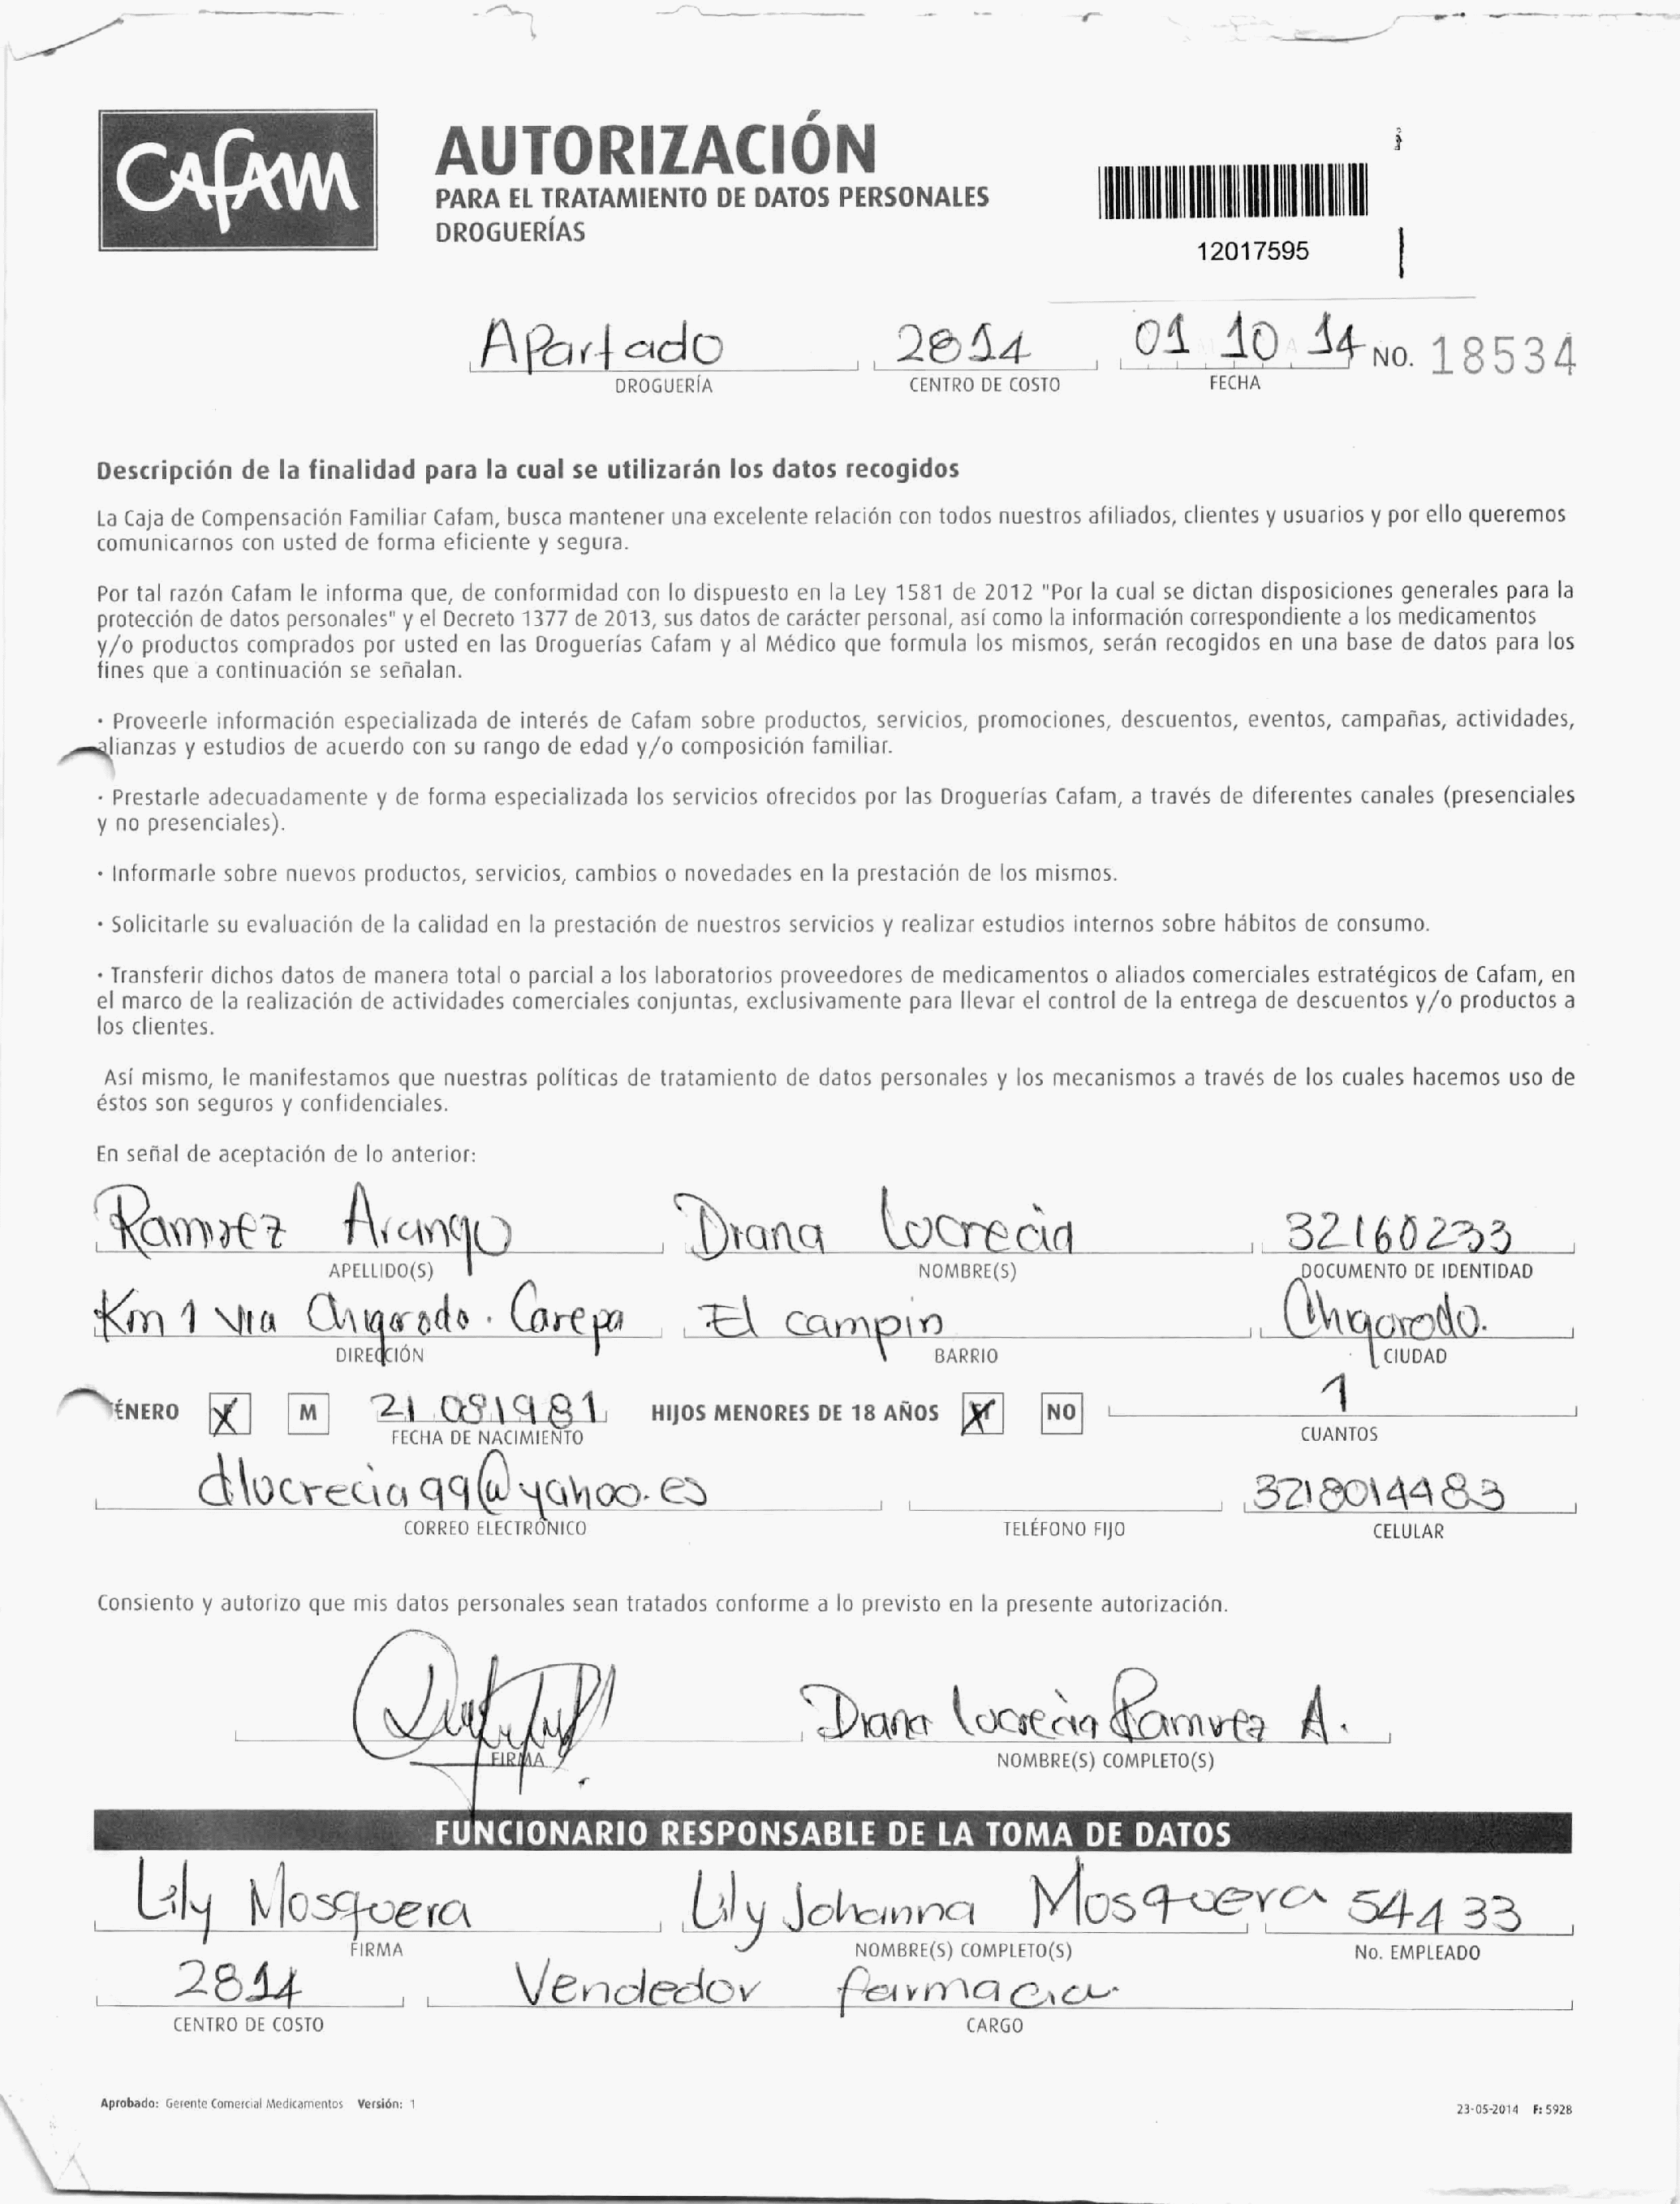 CAFAM
AUTORIZACIÓN
PARA EL TRATAMIENTO DE DATOS PERSONALES
DROGUERÍAS
12017595
APartado 2814 01 10 14 NO. 18534
DROGUERÍA CENTRO DE COSTO FECHA
Descripción de la finalidad para la cual se utilizarán los datos recogidos
La Caja de Compensación Familiar Cafam, busca mantener una excelente relación con todos nuestros afiliados, clientes y usuarios y por ello queremos
comunicarnos con usted de forma eficiente y segura.
Por tal razón Cafam le informa que, de conformidad con lo dispuesto en la Ley 1581 de 2012 "Por la cual se dictan disposiciones generales para la
protección de datos personales" y el Decreto 1377 de 2013, sus datos de carácter personal, así como la información correspondiente a los medicamentos
y/o productos comprados por usted en las Droguerías Cafam y al Médico que formula los mismos, serán recogidos en una base de datos para los
fines que a continuación se señalan.
· Proveerle información especializada de interés de Cafam sobre productos, servicios, promociones, descuentos, eventos, campañas, actividades,
alianzas y estudios de acuerdo con su rango de edad y/o composición familiar.
· Prestarle adecuadamente y de forma especializada los servicios ofrecidos por las Droguerías Cafam, a través de diferentes canales (presenciales
y no presenciales).
· Informarle sobre nuevos productos, servicios, cambios o novedades en la prestación de los mismos.
· Solicitarle su evaluación de la calidad en la prestación de nuestros servicios y realizar estudios internos sobre hábitos de consumo.
· Transferir dichos datos de manera total o parcial a los laboratorios proveedores de medicamentos o aliados comerciales estratégicos de Cafam, en
el marco de la realización de actividades comerciales conjuntas, exclusivamente para llevar el control de la entrega de descuentos y/o productos a
los clientes.
Así mismo, le manifestamos que nuestras políticas de tratamiento de datos personales y los mecanismos a través de los cuales hacemos uso de
éstos son seguros y confidenciales.
En señal de aceptación de lo anterior:
Ramirez Arango Diana Lucrecia 32160233
APELLIDO(S) NOMBRE(S) DOCUMENTO DE IDENTIDAD
Km 1 via Chigorodo. Carepa El campin Chigorodo.
DIRECCIÓN BARRIO CIUDAD
ÉNERO X M 21 08 1981 HIJOS MENORES DE 18 AÑOS X NO 1
FECHA DE NACIMIENTO CUANTOS
dlucrecia99@yahoo.es 3218014483
CORREO ELECTRÓNICO TELÉFONO FIJO CELULAR
Consiento y autorizo que mis datos personales sean tratados conforme a lo previsto en la presente autorización.
Diana Lucrecia Ramirez A.
FIRMA NOMBRE(S) COMPLETO(S)
FUNCIONARIO RESPONSABLE DE LA TOMA DE DATOS
Lily Mosquera Lily Johanna Mosquera 54133
FIRMA NOMBRE(S) COMPLETO(S) No. EMPLEADO
2814 Vendedor farmacia
CENTRO DE COSTO CARGO
Aprobado: Gerente Comercial Medicamentos Versión: 1 23-05-2014 F: 5928